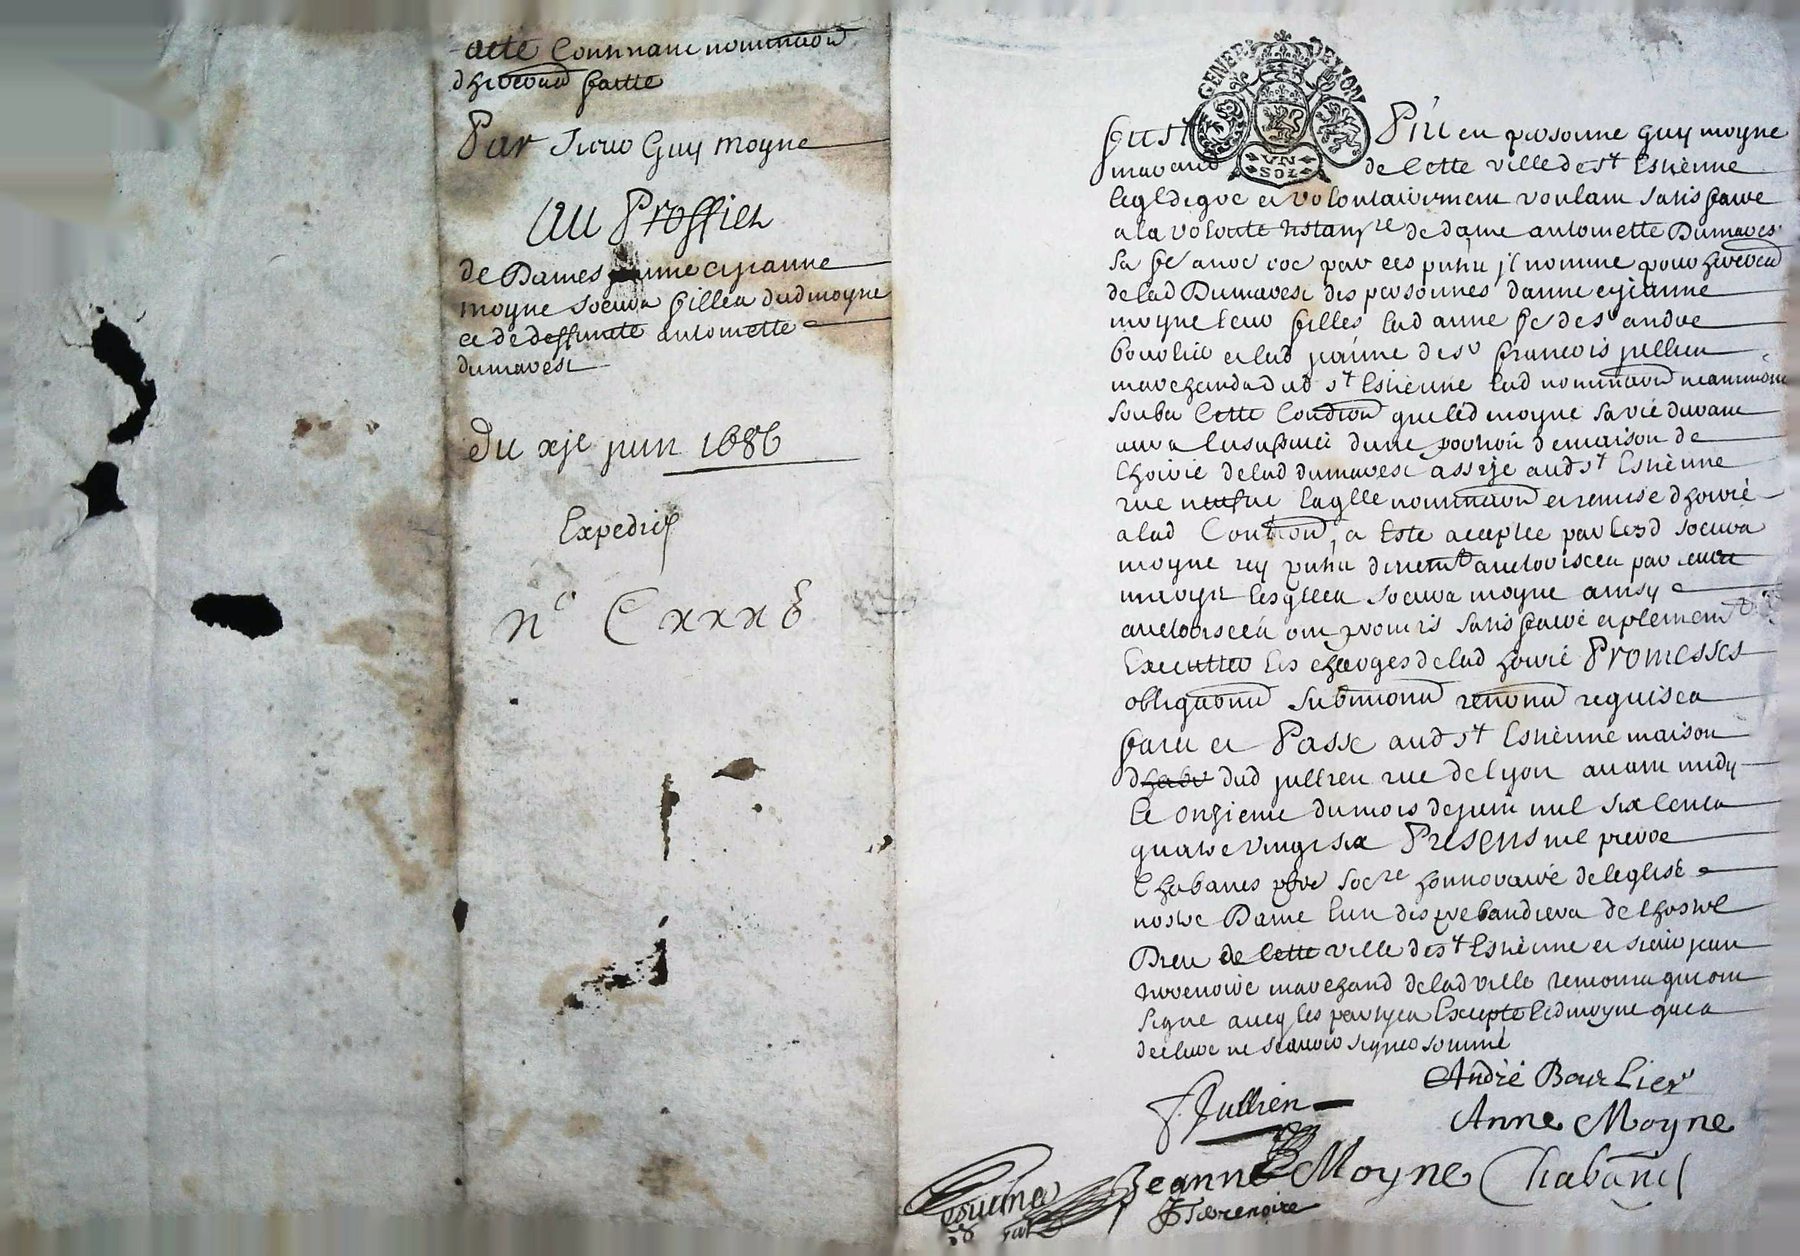 acte Contenant nomination
dheredité faitte
Par Sieur Guy moyne
Au Proffict
de Dames anne et jeanne
moyne soeurs filles dud moyne
et de deffuncte antoinette
dumarest
du xje juin 1686
Expedié
n° Cxxx8
GENER DE LYON
VN
SOL
fust Pnt en personne guy moyne
marchand de cette ville de st Estienne
leql de gre et volontairement voulant satisfaire
a la volonte de dame antoinette Dumarest
sa fe par ces pntes jl nomme pour heredes
de lad Dumarest des personnes danne et jeanne
moyne leurs filles lad anne fe de sr andre
bourlier et lad jeanne de sr francois jullien
marchands dud st Estienne lad nomination neanmoins
soubs cette Condition que led moyne sa vie durant
aura la jouissance dune portion de maison de
Lhoirie de lad dumarest assize aud st Estienne
rue neufve laqlle nomination et remise dhoirie
a lad Condition a este acceptee par lesd soeurs
moyne
lesqlles soeurs moyne ainsy
auctorisées ont promis satisfaire et plement
Executter les charges de lad hoirie Promesses
obligations submissions renons requises
faict et Passe aud st Estienne maison
dhabn dud jullien rue de lyon avant midy
le onzieme du mois de juin mil six cents
quatre vingt six Presens me pierre
Chabanes pbre socre honnoraire de leglise
nostre Dame lun des prebandiers de lhostel
Dieu de cette ville de st Estienne et sieur jean
marchand de lad ville temoins qui ont
signe avecq les partyes Excepte led moyne qui a
declare ne scavoir signer somme
André Bourlier
F. Jullien
Anne Moyne
Jeanne Moyne Chabanes